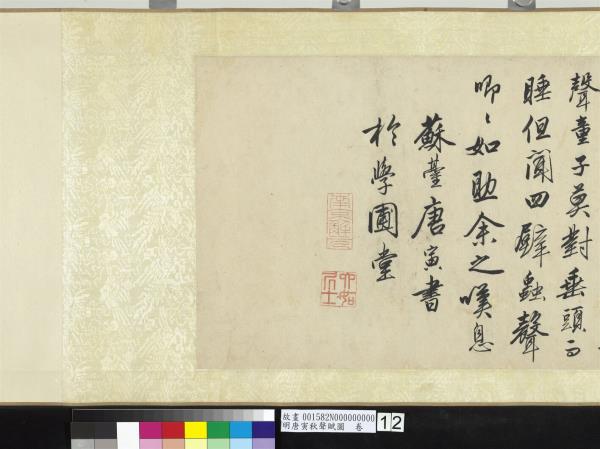 聲童子莫對垂頭而
睡但聞四壁蟲聲
唧〻如助余之嘆息
蘇臺唐寅書
於學圃堂
南京解元
六如居士
故畫 001582N000000000
明唐寅秋聲賦圖 卷
12